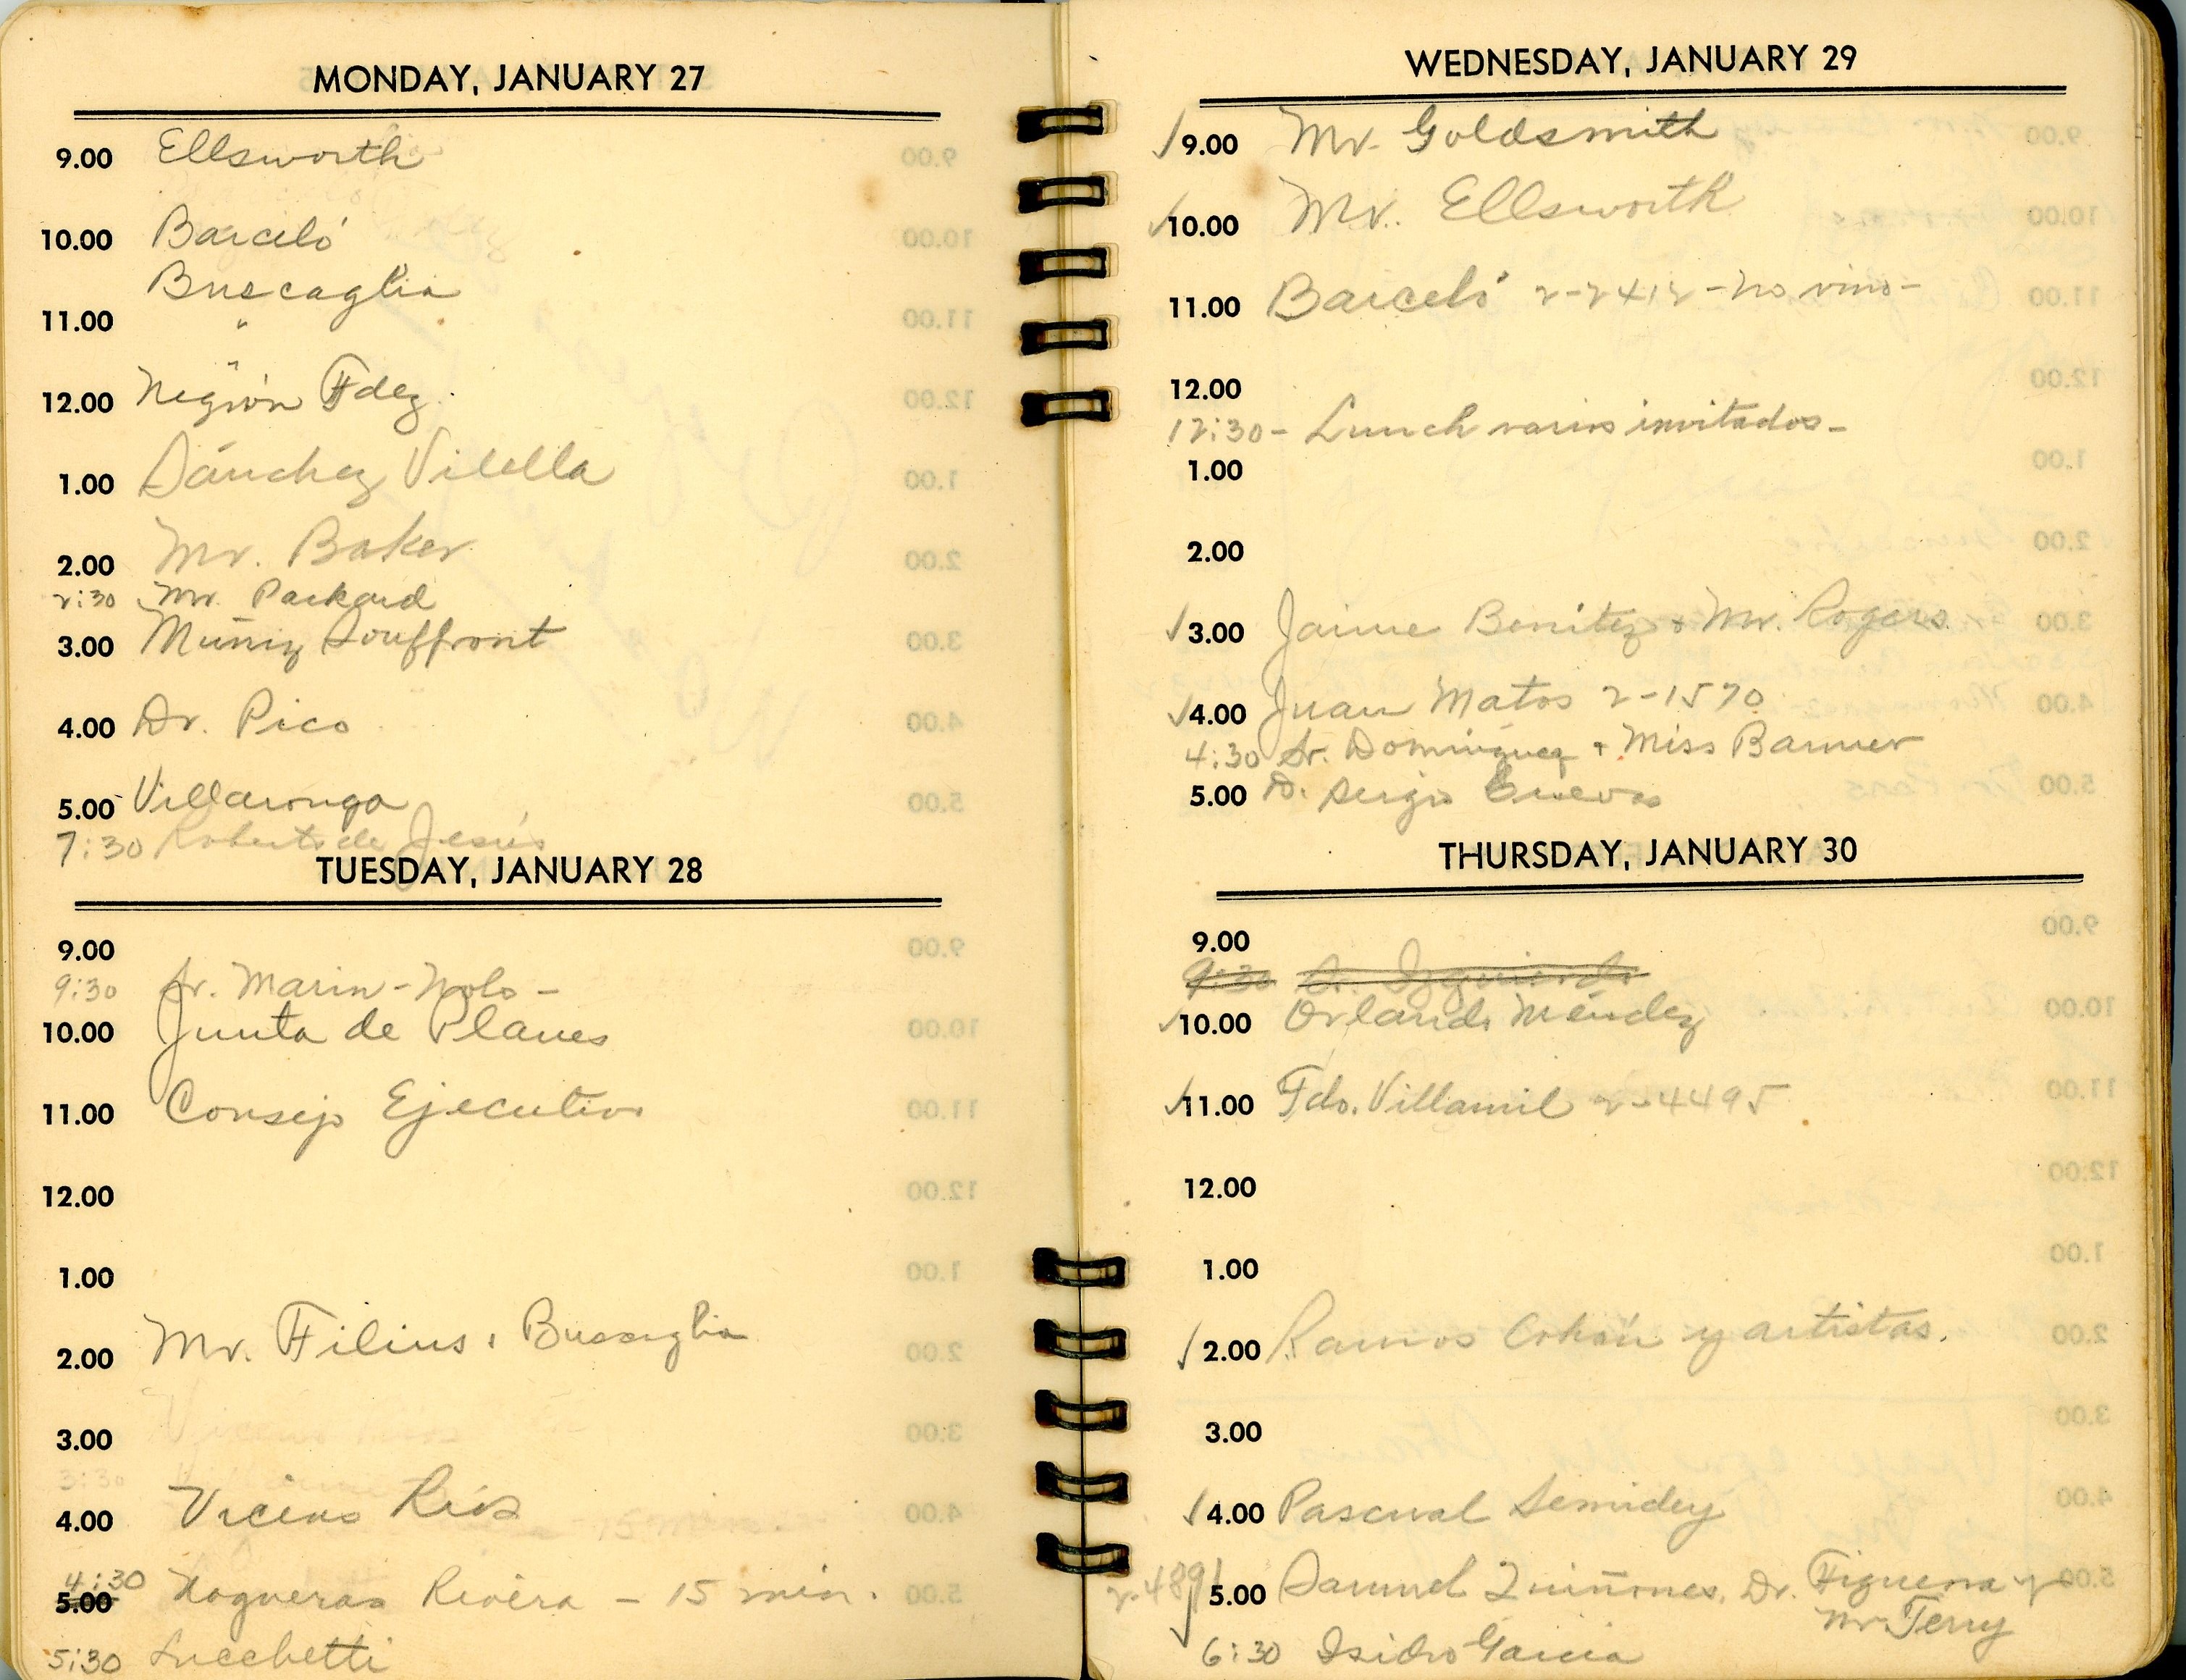 MONDAY, JANUARY 27
9.00 Ellsworth
10.00 Barceló
Buscaglia
11.00 "
12.00 Negrón Fdez.
1.00 Sánchez Vilella
2.00 Mr. Baker
2:30 Mr. Packard
3.00 Muñiz Souffront
4.00 Dr. Pico
5.00 Villaronga
7:30 Roberto de Jesús
TUESDAY, JANUARY 28
9.00
9:30 Sr. Marin - Nolo -
10.00 Junta de Planes
11.00 Consejo Ejecutivo
12.00
1.00
2.00 Mr. Filius, Buscaglia
3.00
3:30
4.00 Vicens Ríos
4:30
5.00 Nogueras Rivera - 15 min.
5:30 Lucchetti
WEDNESDAY, JANUARY 29
9.00 Mr. Goldsmith
10.00 Mr. Ellsworth
11.00 Barceló 2-2412 - no vino -
12.00
12:30 - Lunch varios invitados -
1.00
2.00
3.00 Jaime Benítez + Mr. Rogers
4.00 Juan Matos 2-1570
4:30 Sr. Domínguez + Miss Banner
5.00 D. Sergio Cuevas
THURSDAY, JANUARY 30
9.00
9:30 Sr. Izquierdo
10.00 Orlando Méndez
11.00 Fdo. Villamil 2-4495
12.00
1.00
2.00 Ramos Cohán y artistas.
3.00
4.00 Pascual Semidey
2-4891 5.00 Samuel Quiñones, Dr. Figueroa y
Mr. Terry
6:30 Isidro García